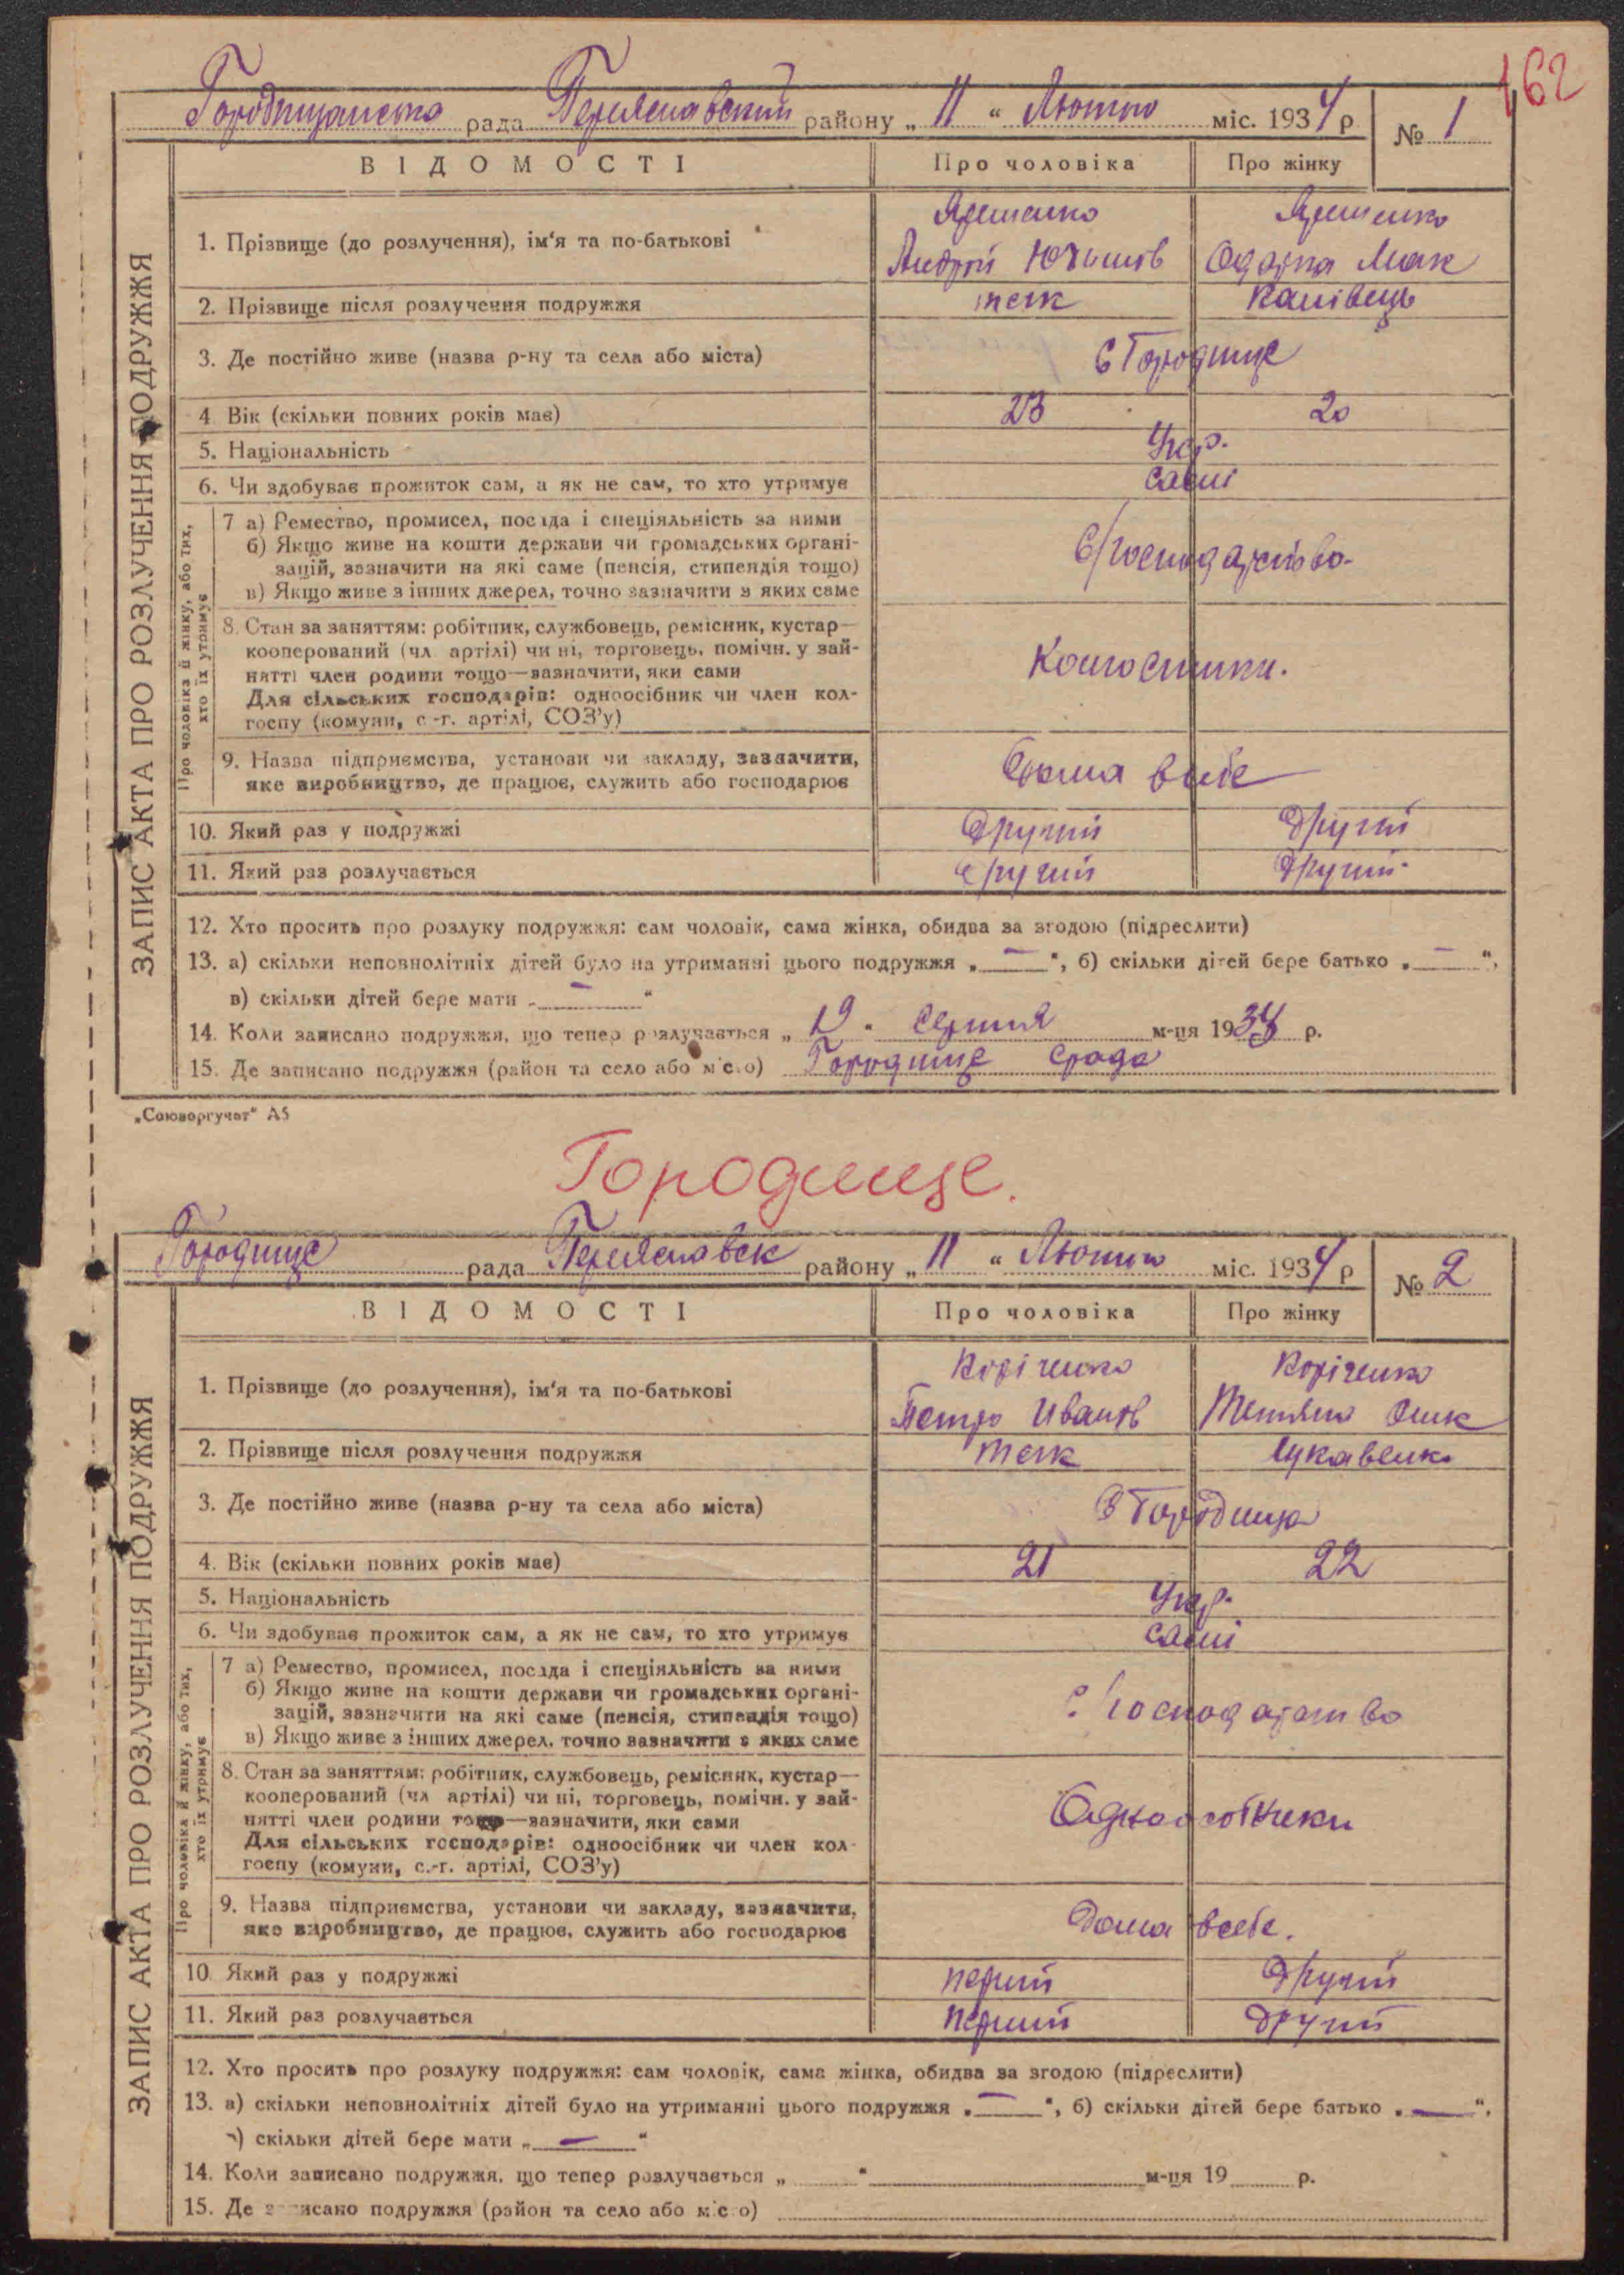 162
Городищанська рада Переяславский району „ 11 “ Лютого міс. 1934 р № 1
ВІДОМОСТІ Про чоловіка Про жінку
ЗАПИС АКТА ПРО РОЗЛУЧЕННЯ ПОДРУЖЖЯ
1. Прізвище (до розлучення), ім‘я та по-батькові Ярешенко Андрій Ярешенко Одарка Мак
2. Прізвище після розлучення подружжя теж Канівець
3. Де постійно живе (назва р-ну та села або міста) с Городище
4. Вік (скільки повних років має) 23 20
5. Національність Укр.
6. Чи здобуває прожиток сам, а як не сам, то хто утримує сами
Про чоловіка й жінку, або тих, хто їх утримує
7 а) Ремество, промисел, посада і спеціяльність за ними
б) Якщо живе на кошти держави чи громадських органі-
зацій, зазначити на які саме (пенсія, стипендія тощо)
в) Якщо живе з інших джерел, точно зазначити з яких саме
с/господарство
8. Стан за заняттям: робітник, службовець, ремісник, кустар—
кооперований (чл. артілі) чи ні, торговець, помічн. у зай-
нятті член родини тощо—зазначити, яки сами
Для сільських господарів: одноосібник чи член кол-
госпу (комуни, с.-г. артілі, СОЗ’у)
9. Назва підприємства, установи чи закладу, зазначити,
яке виробництво, де працює, служить або господарює
дома в себе
10. Який раз у подружжі другий другий
11. Який раз розлучається другий другий
12. Хто просить про розлуку подружжя: сам чоловік, сама жінка, обидва за згодою (підреслити)
13. а) скільки неповнолітніх дітей було на утриманні цього подружжя „ — “, б) скільки дітей бере батько „ — “,
в) скільки дітей бере мати „ — “
14. Коли записано подружжя, що тепер розлучається „ 19 “ серпня м-ця 1933 р.
15. Де записано подружжя (район та село або місто) Городище срада
„Союзоргучет“ А5
Городище.
Городище рада Переяславск району „ 11 “ Лютого міс. 1934 р № 2
ВІДОМОСТІ Про чоловіка Про жінку
ЗАПИС АКТА ПРО РОЗЛУЧЕННЯ ПОДРУЖЖЯ
1. Прізвище (до розлучення), ім‘я та по-батькові Коріченко Петро Иванов Коріченко Тетяна
2. Прізвище після розлучення подружжя теж
3. Де постійно живе (назва р-ну та села або міста) Городище
4. Вік (скільки повних років має) 21 22
5. Національність Укр.
6. Чи здобуває прожиток сам, а як не сам, то хто утримує самі
Про чоловіка й жінку, або тих, хто їх утримує
7 а) Ремество, промисел, посада і спеціяльність за ними
б) Якщо живе на кошти держави чи громадських органі-
зацій, зазначити на які саме (пенсія, стипендія тощо)
в) Якщо живе з інших джерел, точно зазначити з яких саме
с/господарство
8. Стан за заняттям: робітник, службовець, ремісник, кустар—
кооперований (чл артілі) чи ні, торговець, помічн. у зай-
нятті член родини тощо—зазначити, яки сами
Для сільських господарів: одноосібник чи член кол-
госпу (комуни, с.-г. артілі, СОЗ’у)
9. Назва підприємства, установи чи закладу, зазначити,
яке виробництво, де працює, служить або господарює
дома в себе.
10. Який раз у подружжі перший другий
11. Який раз розлучається перший другий
12. Хто просить про розлуку подружжя: сам чоловік, сама жінка, обидва за згодою (підреслити)
13. а) скільки неповнолітніх дітей було на утриманні цього подружжя „ — “, б) скільки дітей бере батько „ — “,
в) скільки дітей бере мати „ — “
14. Коли записано подружжя, що тепер розлучається „ “ м-ця 19 р.
15. Де записано подружжя (район та село або місто)